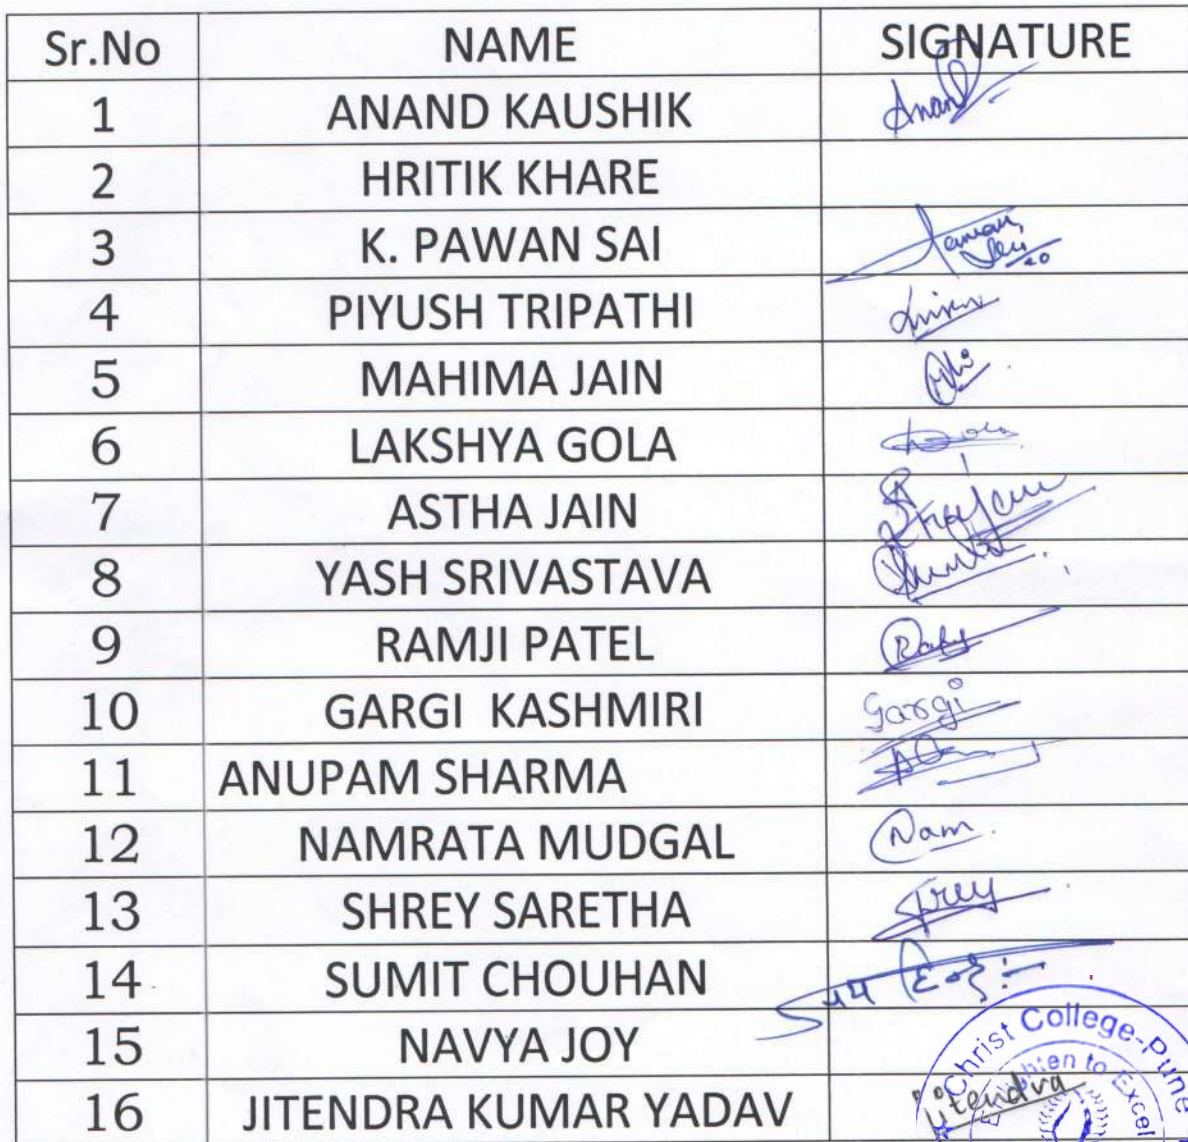 Sr.No NAME SIGNATURE
1 ANAND KAUSHIK Anand
2 HRITIK KHARE
3 K. PAWAN SAI
4 PIYUSH TRIPATHI
5 MAHIMA JAIN
6 LAKSHYA GOLA
7 ASTHA JAIN
8 YASH SRIVASTAVA
9 RAMJI PATEL
10 GARGI KASHMIRI Gargi
11 ANUPAM SHARMA
12 NAMRATA MUDGAL Nam
13 SHREY SARETHA
14 SUMIT CHOUHAN
15 NAVYA JOY
16 JITENDRA KUMAR YADAV Jitendra
Christ College-Pune
to Excel